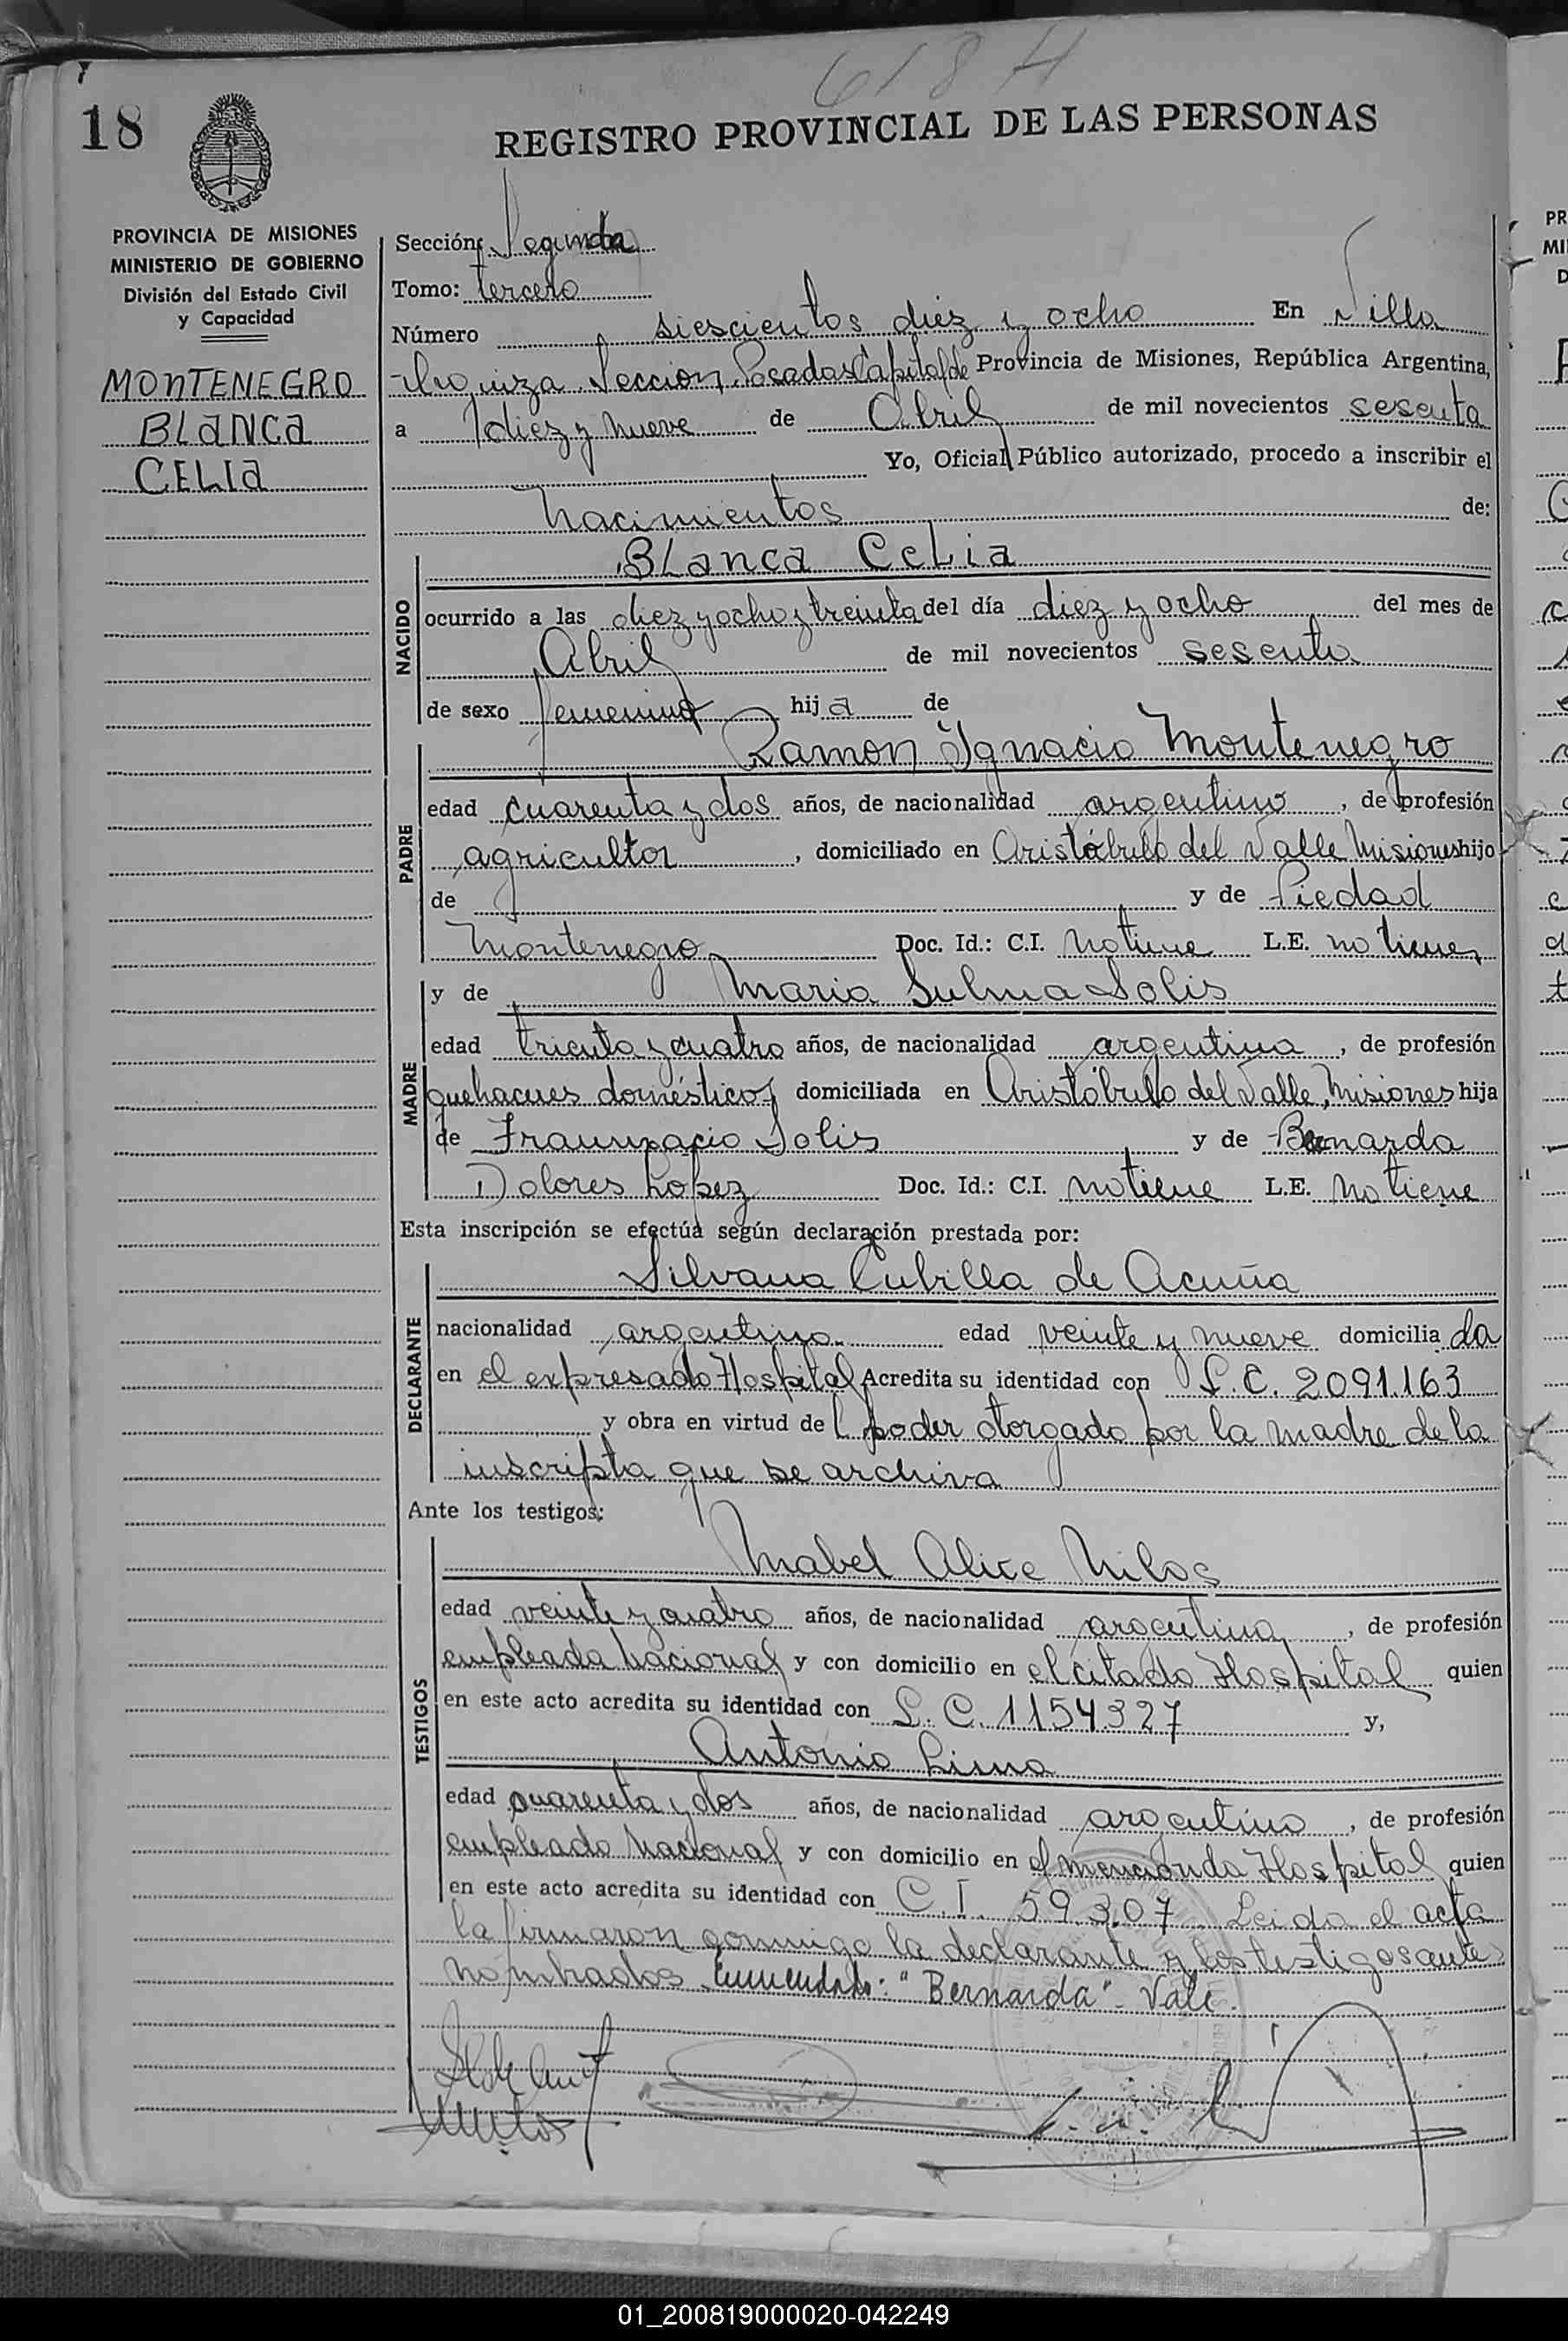 618 H
18
REGISTRO PROVINCIAL DE LAS PERSONAS
PROVINCIA DE MISIONES
MINISTERIO DE GOBIERNO
División del Estado Civil
y Capacidad
MONTENEGRO
BLANCA
CELIA
Sección: Segunda
Tomo: tercero
Número siescientos diez y ocho En Villa
Urquiza Seccion Posadas Capital de Provincia de Misiones, República Argentina,
a diez y nueve de Abril de mil novecientos sesenta
Yo, Oficial Público autorizado, procedo a inscribir el
nacimientos de:
NACIDO
BLanca CeLia
ocurrido a las diez y ocho y treinta del día diez y ocho del mes de
Abril de mil novecientos sesenta
de sexo femenino hija de
PADRE
Ramon Ignacio Montenegro
edad cuarenta y dos años, de nacionalidad argentino, de profesión
agricultor, domiciliado en Aristóbulo del Valle Misiones hijo
de y de Piedad
Montenegro Doc. Id.: C.I. no tiene L.E. no tiene
MADRE
y de Maria Sulma Solis
edad trienta y cuatro años, de nacionalidad argentina, de profesión
quehaceres domésticos domiciliada en Aristóbulo del Valle, Misiones hija
de Solis y de Bernarda
Dolores Lopez Doc. Id.: C.I. no tiene L.E. no tiene
Esta inscripción se efectúa según declaración prestada por:
DECLARANTE
Silvana Cubilla de Acuña
nacionalidad argentina edad veinte y nueve domiciliada
en el expresado Hospital Acredita su identidad con L.C. 2091.163
y obra en virtud del poder otorgado por la madre de la
inscripta que se archiva
Ante los testigos:
TESTIGOS
Mabel Alice Milos
edad veinte y cuatro años, de nacionalidad argentina, de profesión
empleada nacional y con domicilio en el citado Hospital quien
en este acto acredita su identidad con L.C. 1154327 y,
Antonio Lima
edad cuarenta y dos años, de nacionalidad argentino, de profesión
empleado nacional y con domicilio en el mencionado Hospital quien
en este acto acredita su identidad con C.I. 59.307 Leido el acta
la firmaron conmigo la declarante y los testigos ante
nombrados. Enmendado: "Bernarda". Vale.
01_200819000020-042249